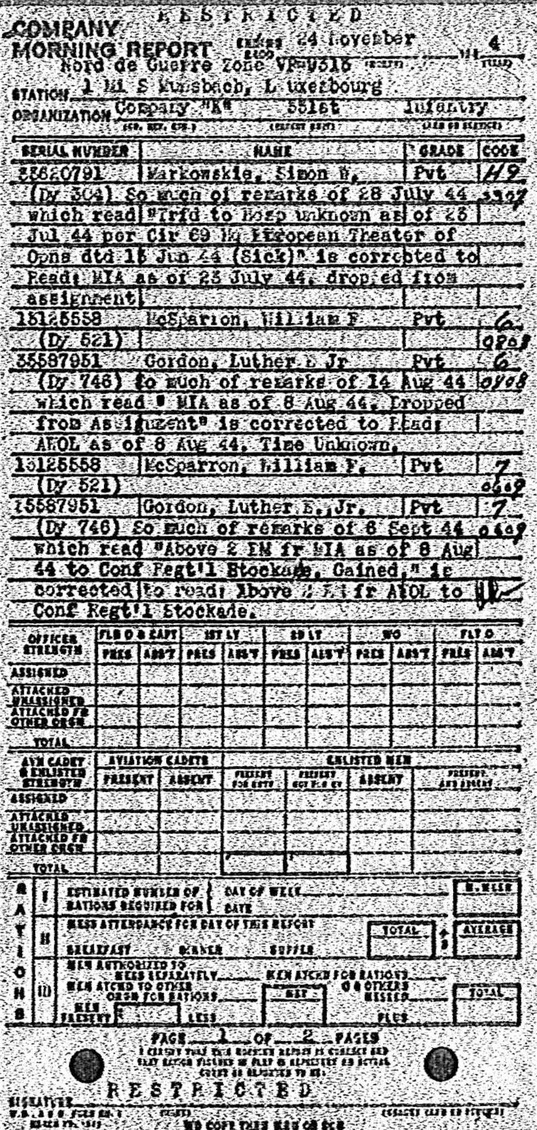 RESTRICTED
COMPANY
MORNING REPORT ENDING 24 November 194 4
Nord de Guerre Zone VP-9316
STATION 1 Mi S Munsbach, Luxembourg
ORGANIZATION Company "K" 331st Infantry
SERIAL NUMBER NAME GRADE CODE
33620791 Markowskie, Simon W. Pvt H9
(Dy 504) So much of remarks of 28 July 44 3307
which read "Trfd to Hosp unknown as of 23
Jul 44 per Cir 69 Hq European Theater of
Opns dtd 13 Jun 44 (Sick)" is corrected to
Read: MIA as of 23 July 44, dropped from
assignment
13125558 McSparron, William F Pvt 6
(Dy 521) 0808
35587951 Gordon, Luther E Jr Pvt 6
(Dy 746) So much of remarks of 14 Aug 44 0808
which read " MIA as of 8 Aug 44. Dropped
from Assignment" is corrected to Read:
AWOL as of 8 Aug 44, Time Unknown.
13125558 McSparron, William F. Pvt 7
(Dy 521) 0609
35587951 Gordon, Luther E., Jr. Pvt 7
(Dy 746) So much of remarks of 6 Sept 44 0609
which read "Above 2 EM fr MIA as of 8 Aug
44 to Conf Regt'l Stockade, Gained," is
corrected to read: Above 2 EM fr AWOL to
Conf Regt'l Stockade.
OFFICER STRENGTH FLD O & CAPT 1ST LT 2D LT WO FLT O
PRES ABS'T PRES ABS'T PRES ABS'T PRES ABS'T PRES ABS'T
ASSIGNED
ATTACHED UNASSIGNED
ATTACHED FR OTHER ORGN
TOTAL
AVN CADET & ENLISTED STRENGTH AVIATION CADETS ENLISTED MEN
PRESENT ABSENT PRESENT FOR DUTY PRESENT NOT FOR DY ABSENT PRESENT AND ABSENT
ASSIGNED
ATTACHED UNASSIGNED
ATTACHED FR OTHER ORGN
TOTAL
RATIONS
I ESTIMATED NUMBER OF RATIONS REQUIRED FOR DAY OF WEEK
DATE
II MESS ATTENDANCE FOR DAY OF THIS REPORT TOTAL ÷3 AVERAGE
BREAKFAST DINNER SUPPER
III MEN AUTHORIZED TO MESS SEPARATELY MEN ATCHD FOR RATIONS
MEN ATCHD TO OTHER ORGN FOR RATIONS NET OR OTHERS MESSED TOTAL
MEN PRESENT LESS PLUS
PAGE 1 OF 2 PAGES
I CERTIFY THAT THIS MORNING REPORT IS CORRECT AND
RESTRICTED
SIGNATURE